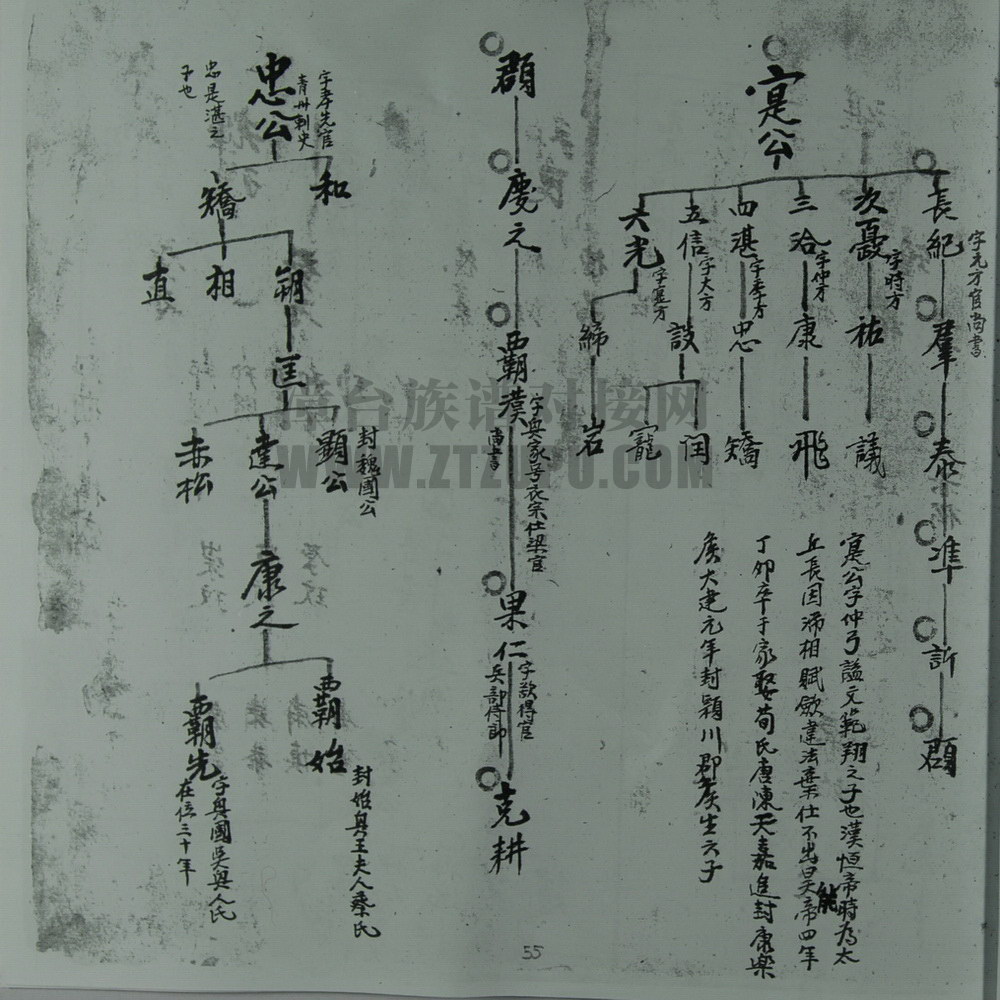 寔公
長紀
字元方官尚書
羣
泰
準
訢
頵
次諶
字時方
祐
議
三洽
字仲方
康
飛
四湛
字季方
忠
矯
五信
字大方
設
閏
寵
六光
字昱方
締
岩
寔公字仲弓謚文範翔之子也漢恒帝時為太
丘長因沛相賦歛違法棄仕不出昊帝四年
丁卯卒于家娶荀氏唐陳天嘉進封康樂
矦大建元年封穎川郡矦生六子
能
頵
慶元
覇漢
字興家号衣宗仕梁官
尚書
果仁
字欲得官
兵部侍郎
克耕
忠公
字孝先官
青州刺史
忠是湛之
子也
和
矯
朔
相
直
匡
顯公
封魏國公
達公
赤松
康之
覇始
封始興王夫人蔡氏
覇先
字興國吳興人氏
在位三十年
南台族谱对接网
WWW.ZTZUPU.COM
55